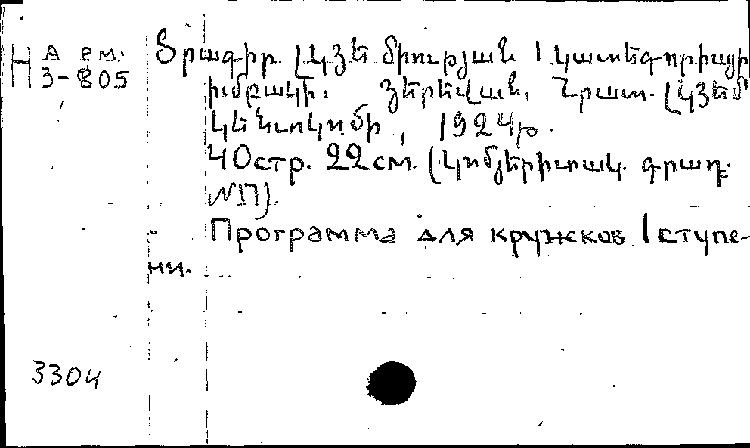 Н А рм.
3-805
Ծրագիր ԼԿՅԵ Միության I կատեգորիայի
խմբակի. Յերեվան, Հրատ. ԼԿՅԵՄ
Կենտկոմի, 1924թ.
40стр. 22см. (Կոմյերիտակ. գրադ.
№II).
Программа для кружков I ступе-
ни.
3304